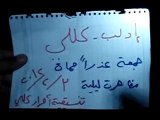 إدلب - كللي
جمعة عذراً حماة
مظاهرة ليلية ٢/٢/٢٠١٢
تنسيقية أحرار كللي